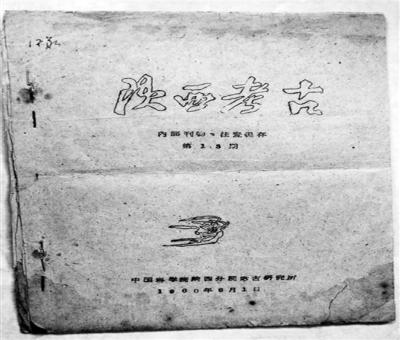 陕西考古
内部刊物・注意保存
第18期
中国科学院陕西分院考古研究所
1960年6月1日